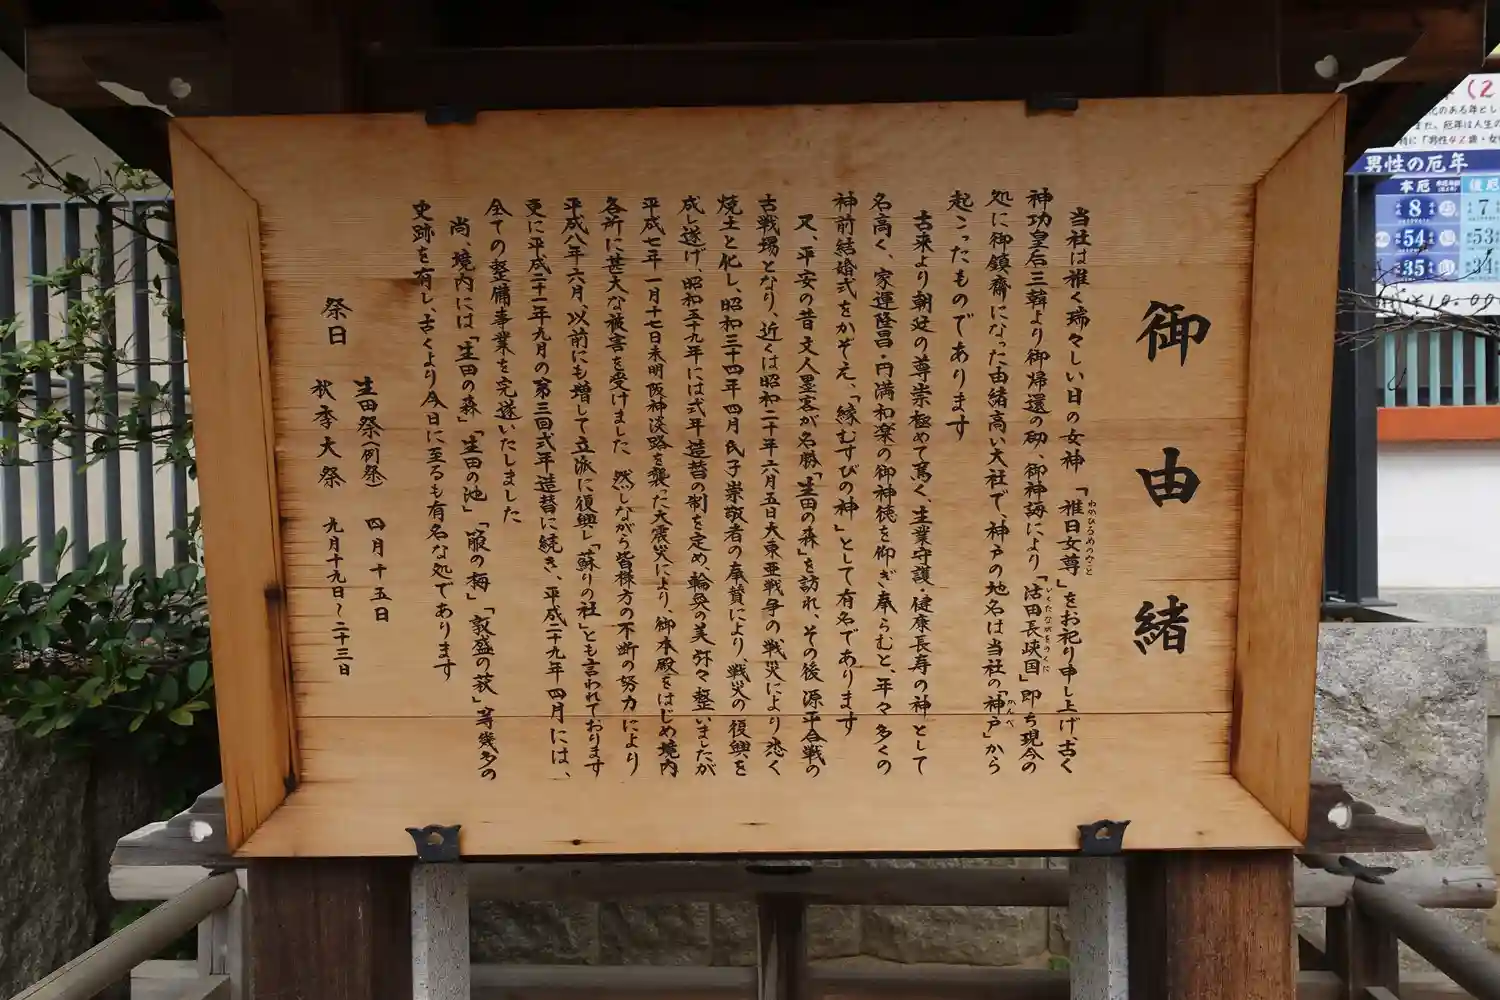 御由緒
当社は稚く瑞々しい日の女神「稚日女尊」をお祀り申し上げ、古く
わかひるめのみこと
神功皇后三韓より御帰還の砌、御神誨により「活田長峡国」即ち現今の
いくたながをのくに
処に御鎮齋になった由緒高い大社で、神戸の地名は当社の「神戸」から
かんべ
起こったものであります
古来より朝廷の尊崇極めて篤く、生業守護・健康長寿の神として
名高く、家運隆昌・円満和楽の御神徳を仰ぎ奉らむと、年々多くの
神前結婚式をかぞえ、「縁むすびの神」として有名であります
又、平安の昔文人墨客が名勝「生田の森」を訪れ、その後源平合戦の
古戦場となり、近くは昭和二十年六月五日大東亜戦争の戦災により悉く
焼土と化し、昭和三十四年四月氏子崇敬者の奉賛により、戦災の復興を
成し遂げ、昭和五十九年には式年造替の制を定め、輪奐の美弥々整いましたが
平成七年一月十七日未明阪神淡路を襲った大震災により、御本殿をはじめ境内
各所に甚大な被害を受けました 然しながら皆様方の不断の努力により
平成八年六月、以前にも増して立派に復興し「蘇りの社」とも言われております
更に平成二十一年九月の第三回式年造替に続き、平成二十九年四月には、
全ての整備事業を完遂いたしました
尚、境内には「生田の森」「生田の池」「箙の梅」「敦盛の萩」等幾多の
史跡を有し、古くより今日に至るも有名な処であります
祭日
生田祭(例祭) 四月十五日
秋季大祭 九月十九日〜二十三日
男性の厄年
本厄
後厄
8
7
54
53
35
34